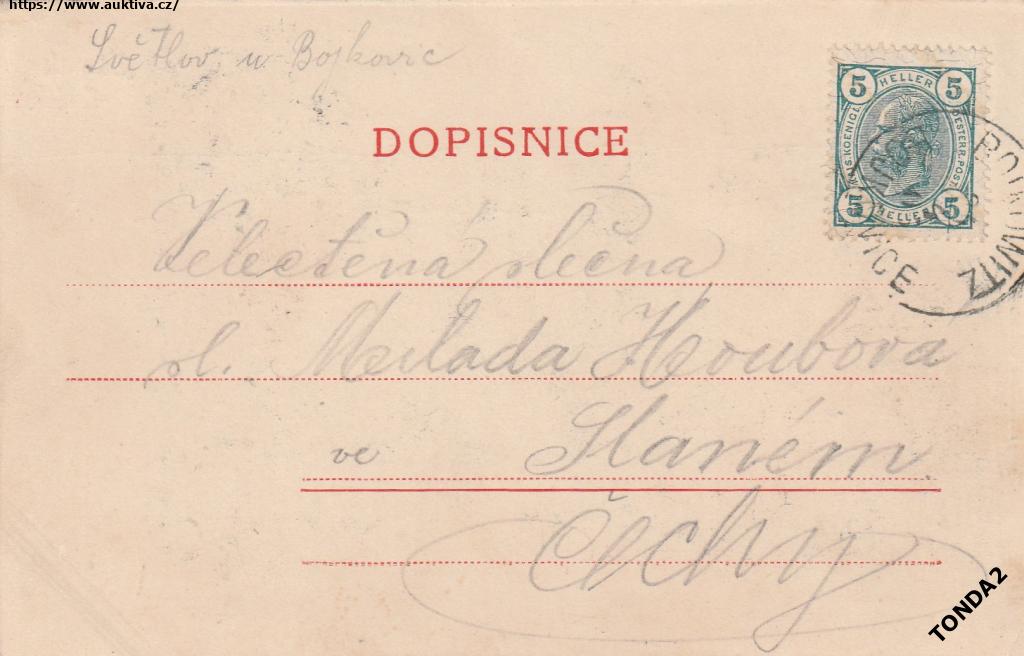 https://www.auktiva.cz/
Světlov u Bojkovic
DOPISNICE
5 HELLER 5
KAIS. KOENIGL. OESTERR. POST.
5 HELLER 5
BOJKOWITZ
Velectěná slečna
sl. Milada Houbova
ve Slaném
Čechy
TONDA2